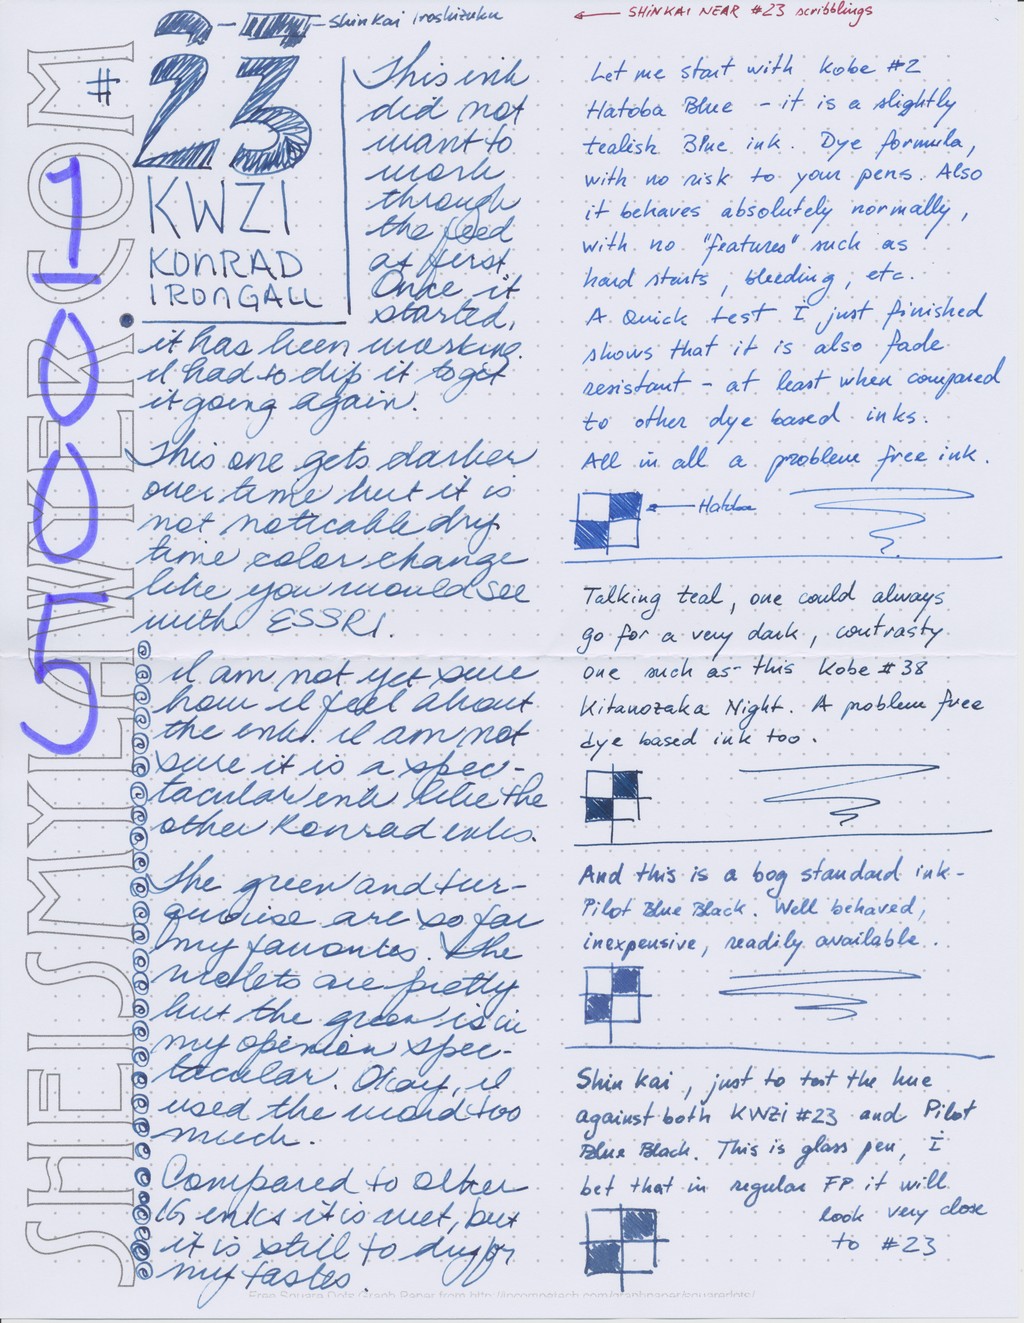 23 - Shinkai iroshizuku
← SHINKAI NEAR #23 scribblings
SHEISMYLAWYER.COM
5001
#23
KWZI
KONRAD
IRONGALL
This ink
did not
want to
work
through
the feed
at first.
Once it
started,
it has been working.
I had to dip it to get
it going again.
This one gets darker
over time but it is
not noticable dry
time color change
like you would see
with ESSRI.
I am not yet sure
how I feel about
the ink. I am not
sure it is a spec-
tacular ink like the
other Konrad inks.
The green and tur-
quoise are so far
my favorites. The
violets are pretty
but the green is in
my opinion spec-
tacular. Okay, I
used the word too
much.
Compared to other
IG inks it is wet, but
it is still to dry for
my tastes.
Let me start with Kobe #2
Hatoba Blue - it is a slightly
tealish Blue ink. Dye formula,
with no risk to your pens. Also
it behaves absolutely normally,
with no "features" such as
hard starts, bleeding, etc.
A Quick test I just finished
shows that it is also fade
resistant - at least when compared
to other dye based inks.
All in all a problem free ink.
← Hatoba
Talking teal, one could always
go for a very dark, contrasty
one such as this Kobe #38
Kitanozaka Night. A problem free
dye based ink too.
And this is a bog standard ink -
Pilot Blue Black. Well behaved,
inexpensive, readily available..
Shin Kai, just to test the hue
against both KWZi #23 and Pilot
Blue Black. This is glass pen, I
bet that in regular FP it will
look very close
to #23
Free Square Dots Graph Paper from http://incompetech.com/graphpaper/squaredots/